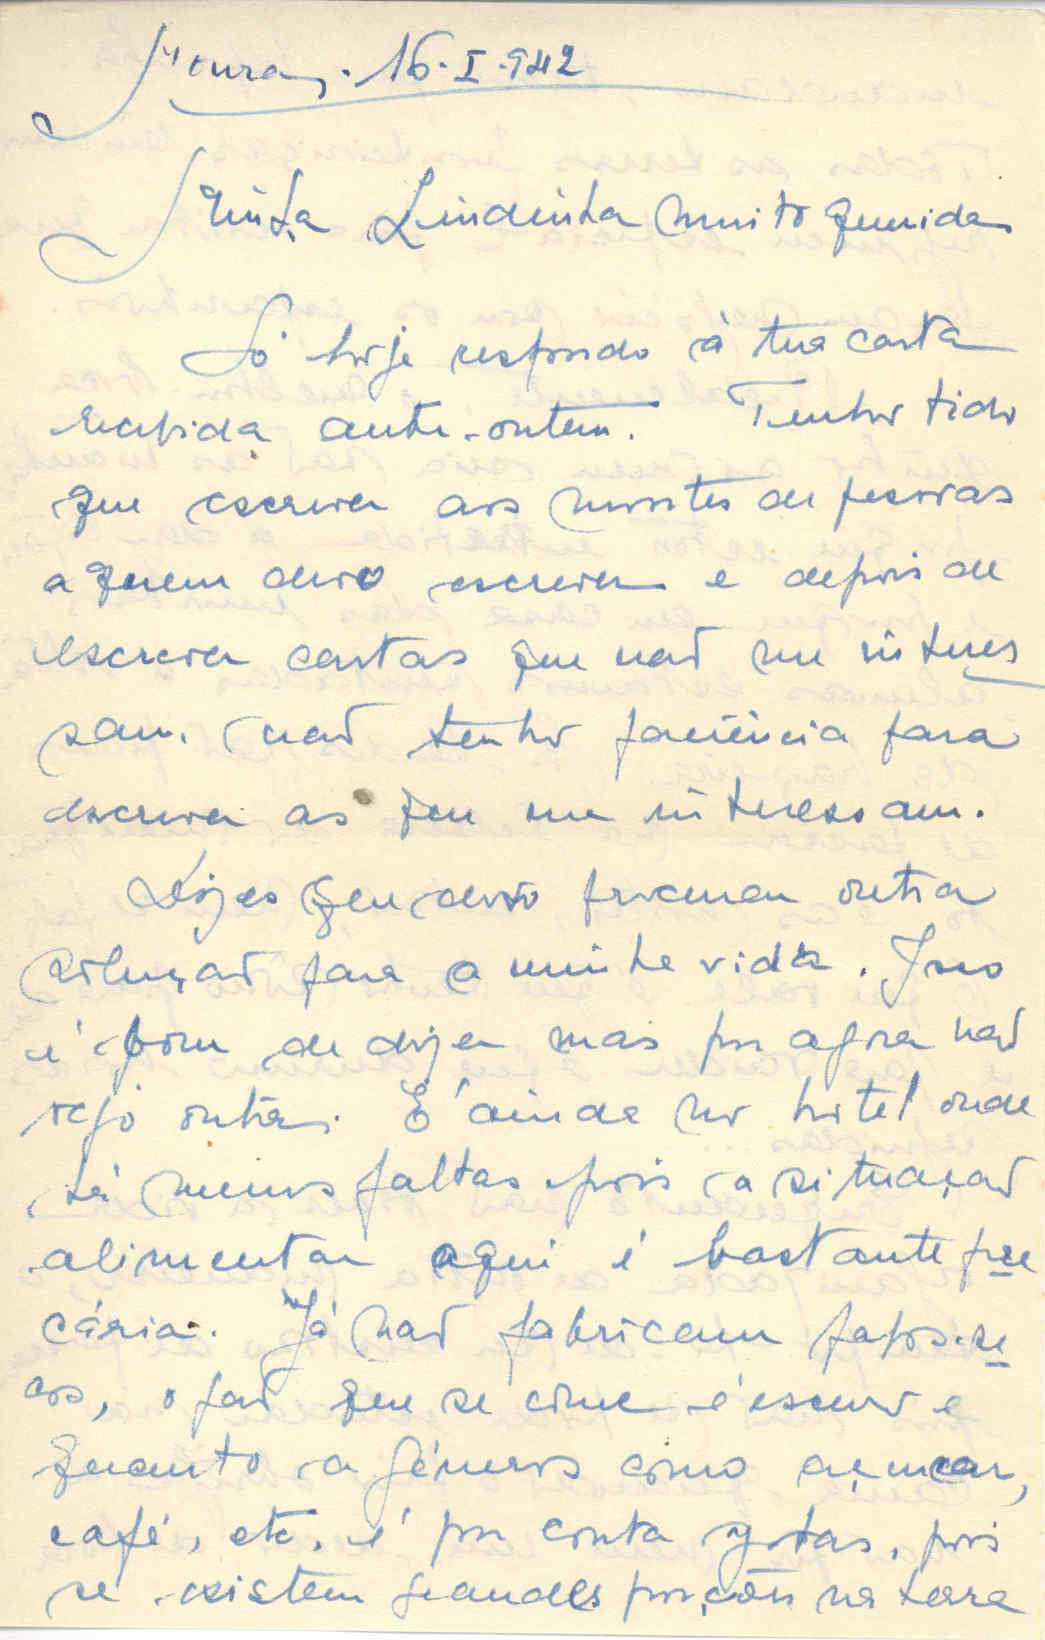 Moura, 16-I-942
Minha Lindinha muito querida
Só hoje respondo à tua carta
recebida ante-ontem. Tenho tido
que escrever aos montes de pessoas
a quem devo escrever e depois de
escrever cartas que não me interes
sam, não tenho paciência para
escrever as que me interessam.
Dizes que devo procurar outra
solução para a minha vida. Isso
é bom de dizer mas por agora não
vejo outra. É ainda no hotel onde
há menos faltas pois a situação
alimentar aqui é bastante pre
cária. Já não fabricam papos-se
cos, o pão que se come é escuro e
quanto a géneros como açucar,
café, etc, é por conta gotas, pois
se existem grandes porções na terra